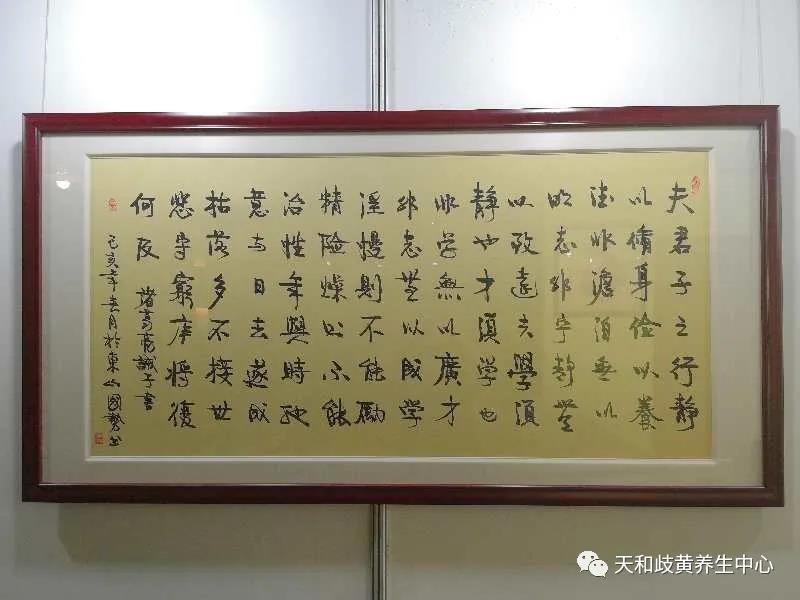 夫君子之行静
以脩身俭以養
德非澹泊無以
明志非宁静無
以致遠夫學須
静也才須学也
非学無以廣才
非志無以成学
淫慢則不能勵
精險燥則不能
治性年與時馳
意与日去遂成
枯落多不接世
悲守窮廬将復
何及 諸葛亮誡子書
己亥年春月於東山國
天和歧黄养生中心